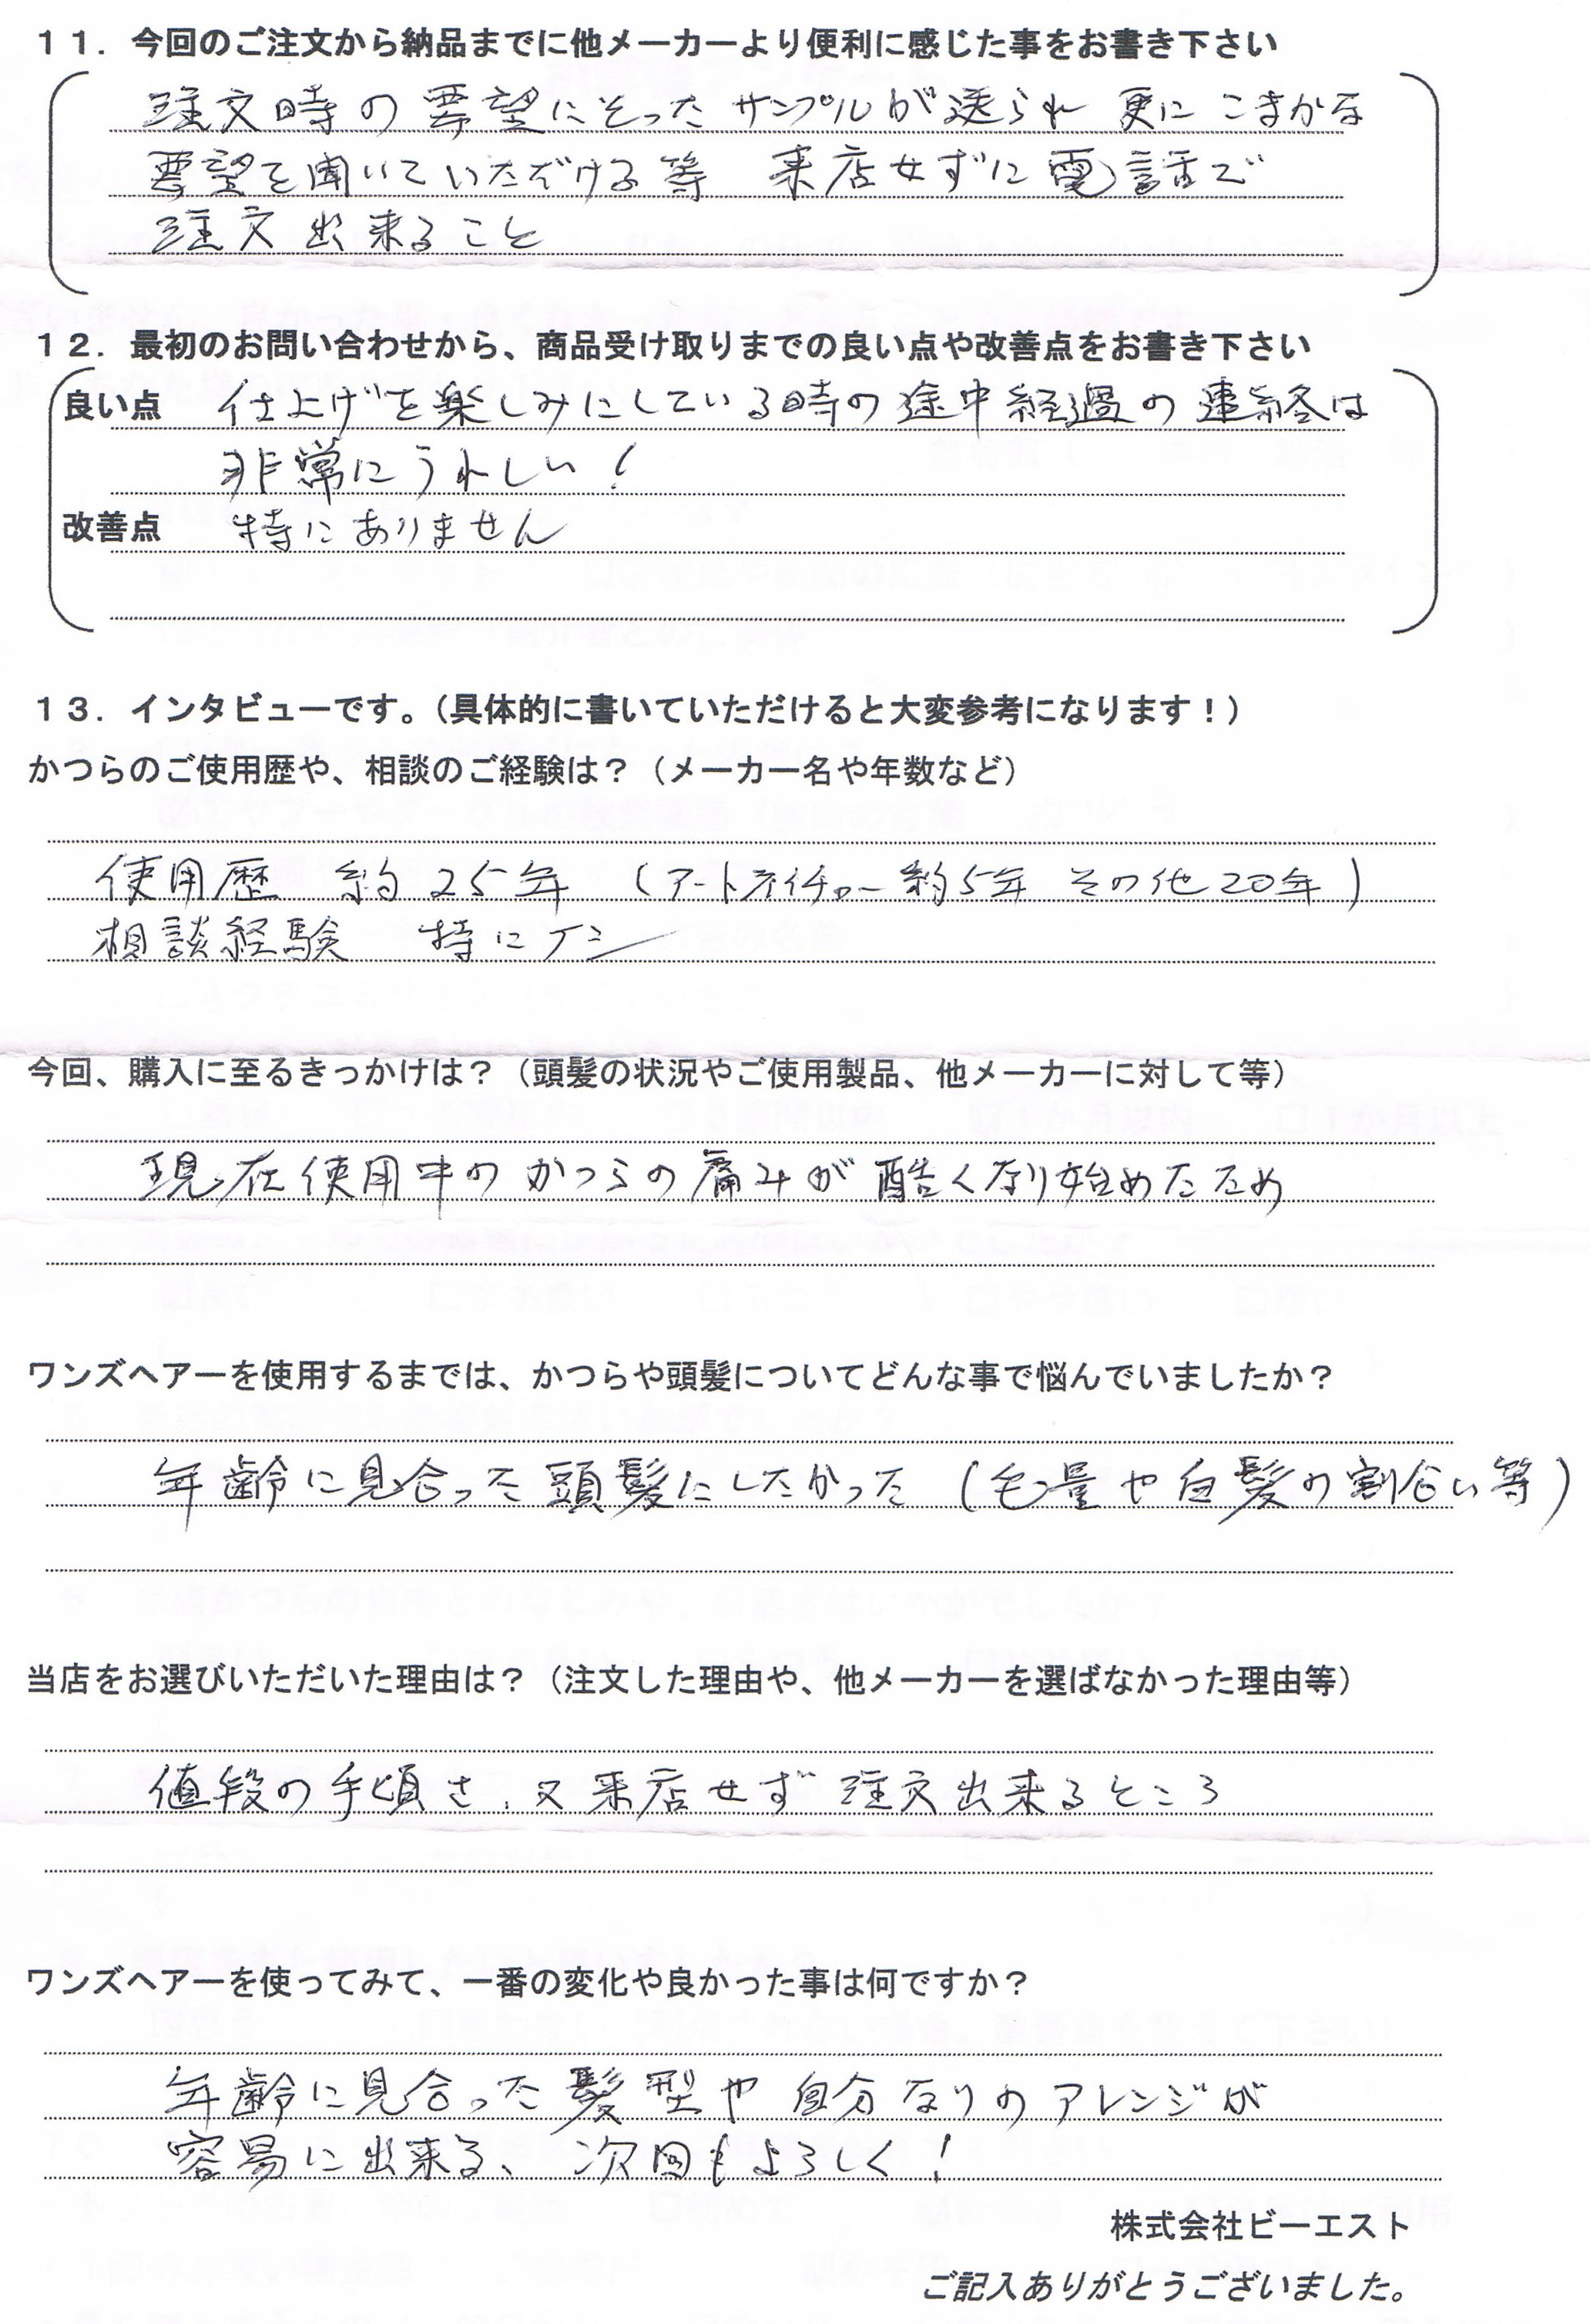 １１．今回のご注文から納品までに他メーカーより便利に感じた事をお書き下さい
注文時の要望にそったサンプルが送られ 更に こまかな
要望を聞いていただける等 来店せずに電話で
注文出来ること
１２．最初のお問い合わせから、商品受け取りまでの良い点や改善点をお書き下さい
良い点 仕上げを楽しみにしている時の途中経過の連絡は
非常にうれしい！
改善点 特にありません
１３．インタビューです。（具体的に書いていただけると大変参考になります！）
かつらのご使用歴や、相談のご経験は？（メーカー名や年数など）
使用歴 約25年 （アートネイチャー約5年 その他20年）
相談経験 特にナシ
今回、購入に至るきっかけは？（頭髪の状況やご使用製品、他メーカーに対して等）
現在使用中のかつらの痛みが酷くなり始めたため
ワンズヘアーを使用するまでは、かつらや頭髪についてどんな事で悩んでいましたか？
年齢に見合った頭髪にしたかった（毛量や白髪の割合い等）
当店をお選びいただいた理由は？（注文した理由や、他メーカーを選ばなかった理由等）
値段の手頃さ、又来店せず注文出来るところ
ワンズヘアーを使ってみて、一番の変化や良かった事は何ですか？
年齢に見合った髪型や自分なりのアレンジが
容易に出来る、次回もよろしく！
株式会社ビーエスト
ご記入ありがとうございました。